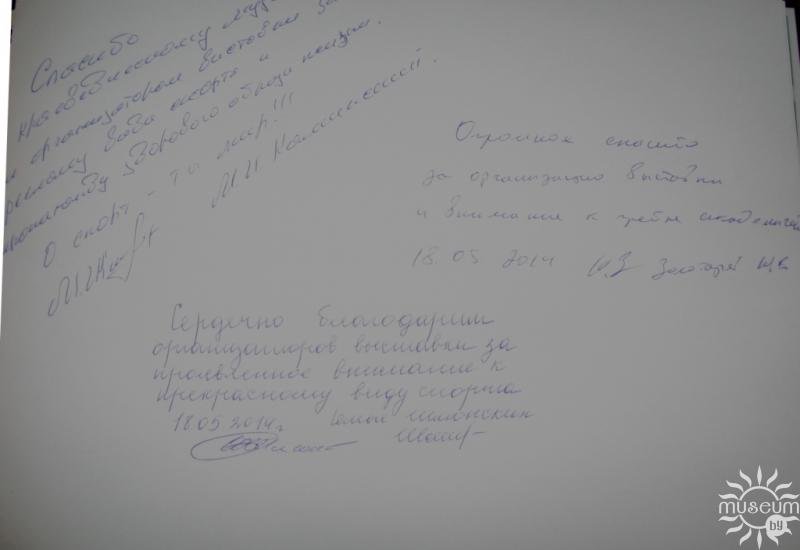 Спасибо
краеведческому музею
и организаторам выставки за
рекламу вида спорта и
пропаганду здорового образа жизни.
О спорт - ты мир!!!
М.И.
Огромное спасибо
за организацию выставки
и внимание к гребле академической
18.05 2014
Сердечно благодарим
организаторов выставки за
проявленное внимание к
прекрасному виду спорта
18.05 2014г
museum
by